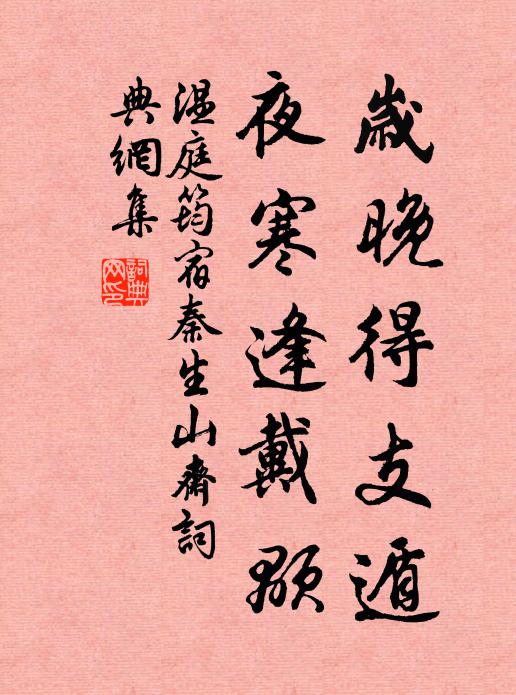 歲晚得支遁
夜寒逢戴顒
溫庭筠宿秦生山齋詞
典網集
詞典网印